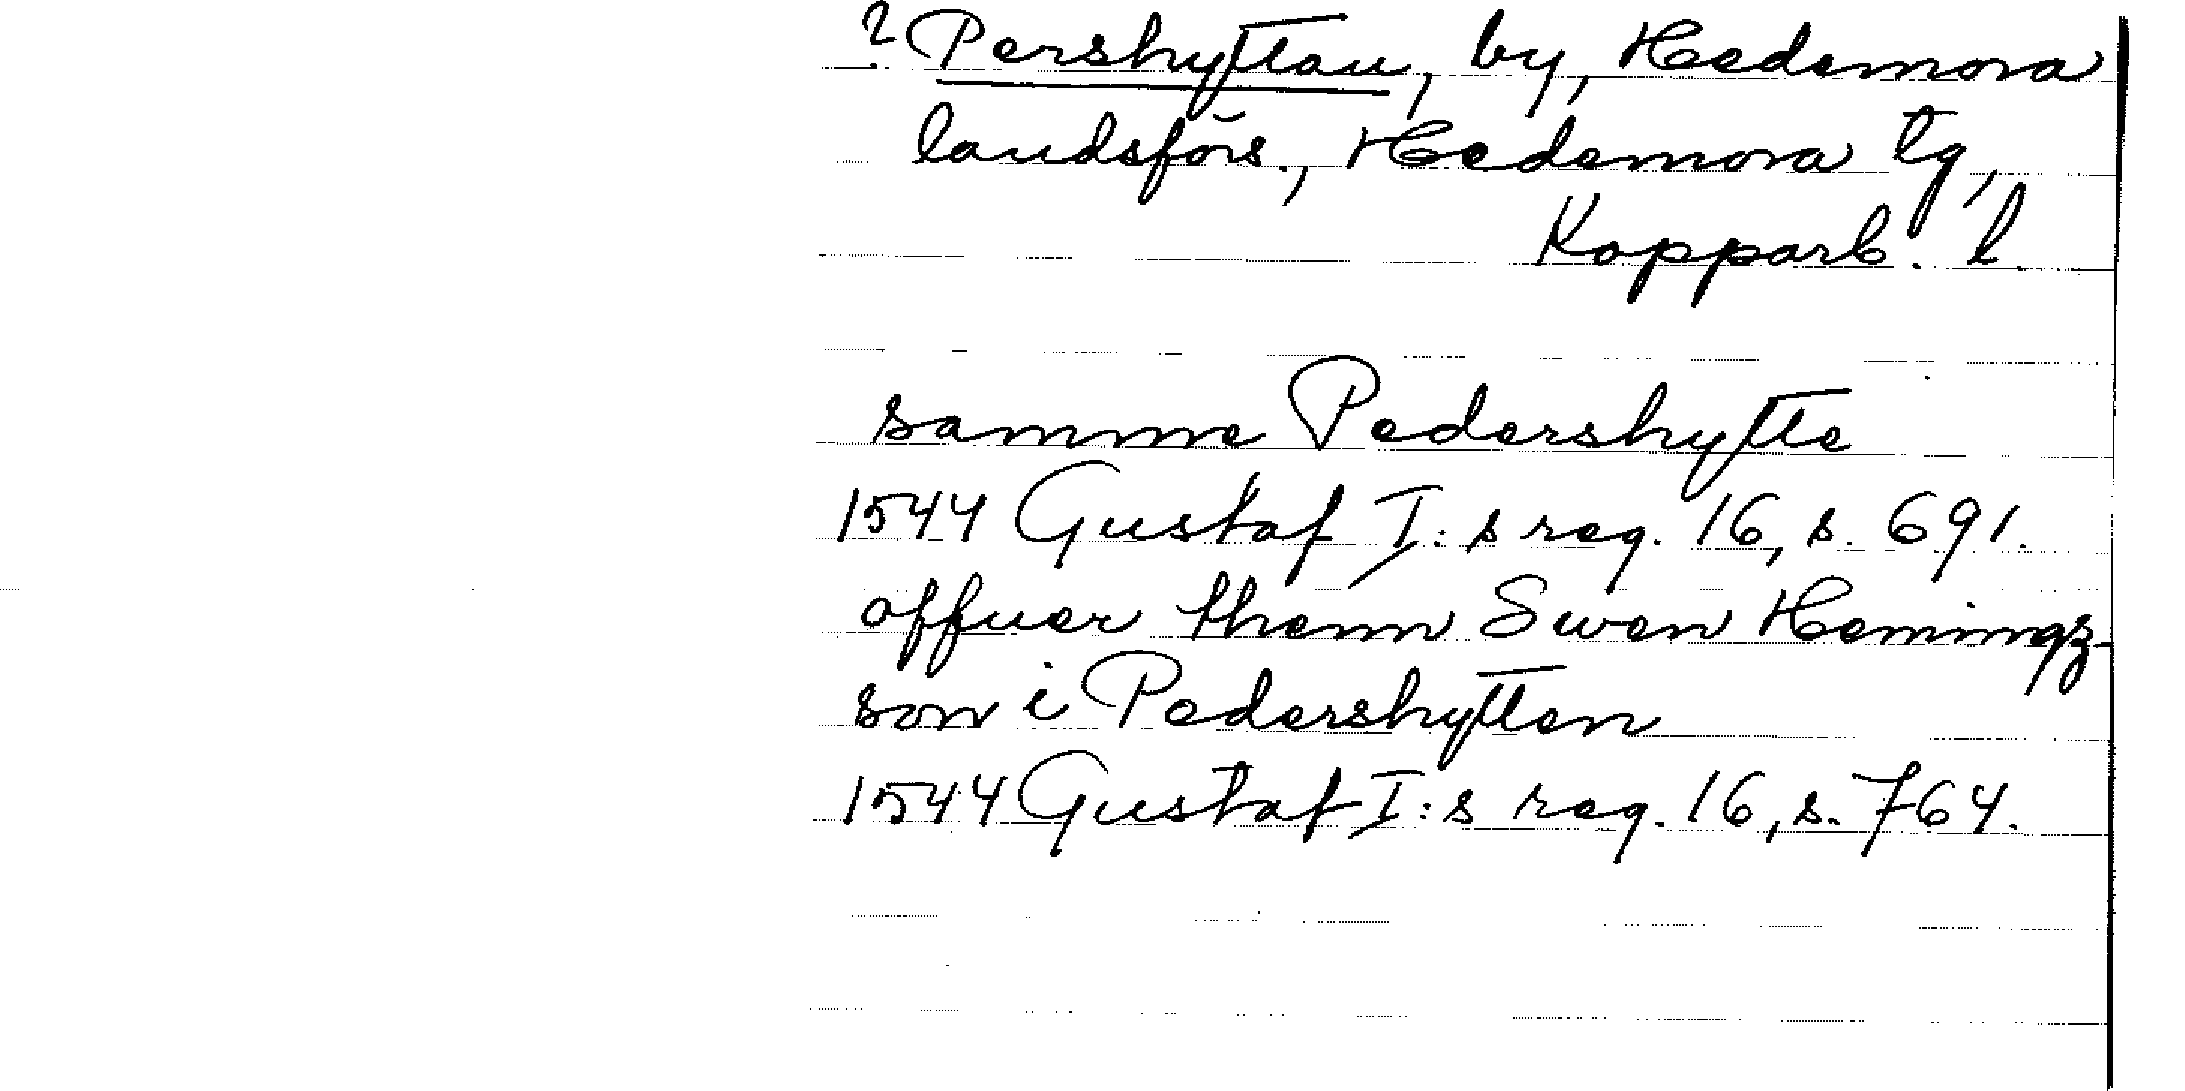 ? Pershyttan, by, Hedemora
landsförs., Hedemora tg,
Kopparb. l.
samme Pedershytte
1544 Gustaf I:s reg. 16, s. 691.
offuer thenn Swen Hemingz-
son i Pedershytten
1544 Gustaf I:s reg. 16, s. 764.